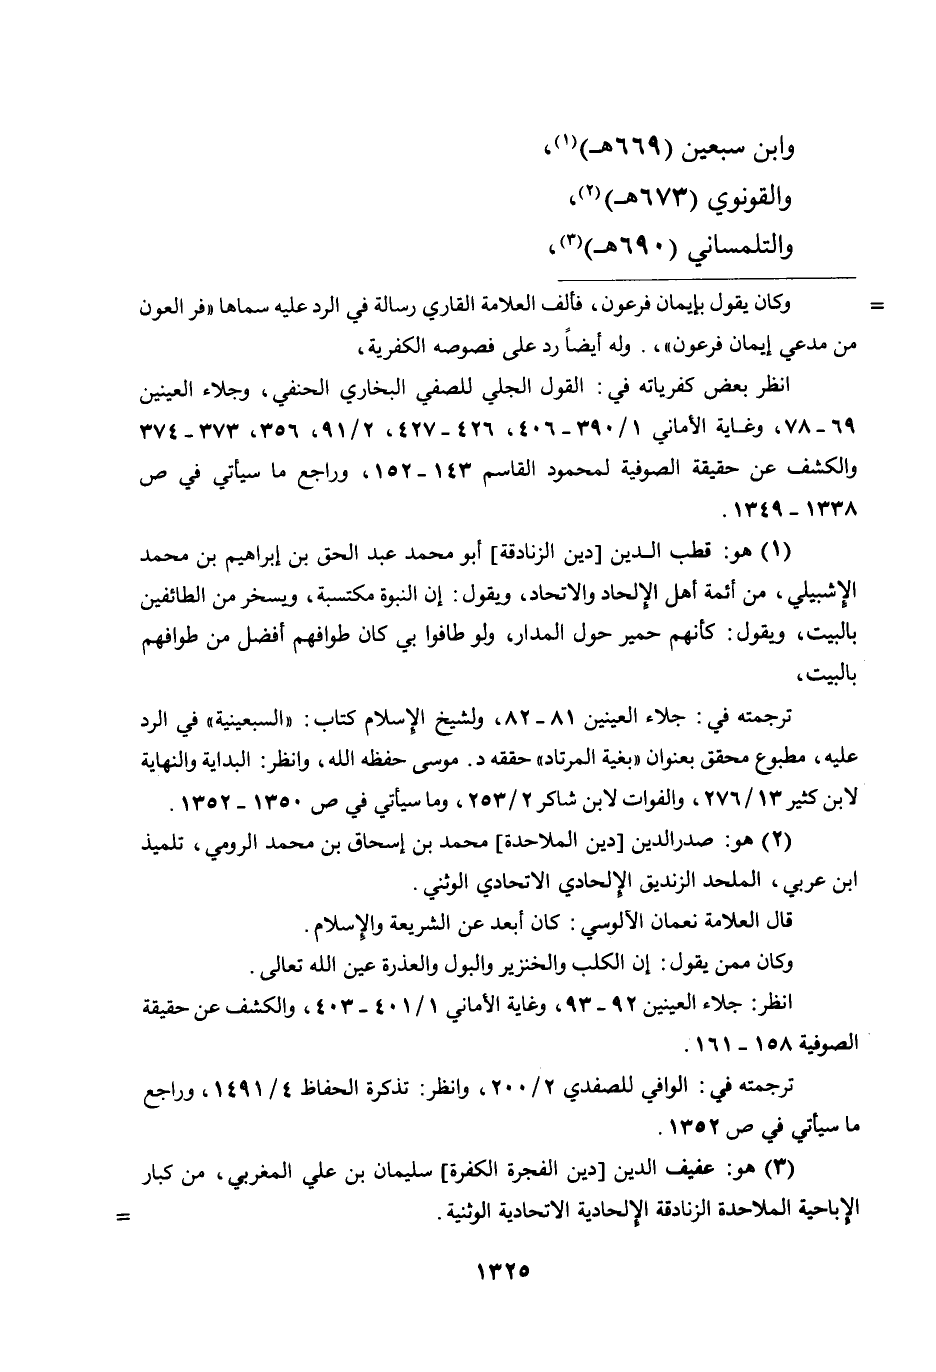 وابن سبعين (٦٦٩هـ)(١)،
والقونوي (٦٧٣هـ)(٢)،
والتلمساني (٦٩٠هـ)(٣)،
= وكان يقول بإيمان فرعون، فألف العلامة القاري رسالة في الرد عليه سماها «فر العون
من مدعي إيمان فرعون»،. وله أيضاً رد على فصوصه الكفرية،
انظر بعض كفرياته في: القول الجلي للصفي البخاري الحنفي، وجلاء العينين
٦٩-٧٨، وغاية الأماني ١/٣٩٠-٤٠٦، ٤٢٦-٤٢٧، ٩١/٢، ٣٥٦، ٣٧٣-٣٧٤
والكشف عن حقيقة الصوفية لمحمود القاسم ١٤٣-١٥٢، وراجع ما سيأتي في ص
١٣٣٨-١٣٤٩.
(١) هو: قطب الدين [دين الزنادقة] أبو محمد عبد الحق بن إبراهيم بن محمد
الإشبيلي، من أئمة أهل الإلحاد والاتحاد، ويقول: إن النبوة مكتسبة، ويسخر من الطائفين
بالبيت، ويقول: كأنهم حمير حول المدار، ولو طافوا بي كان طوافهم أفضل من طوافهم
بالبيت،
ترجمته في: جلاء العينين ٨١-٨٢، ولشيخ الإسلام كتاب: «السبعينية» في الرد
عليه، مطبوع محقق بعنوان «بغية المرتاد» حققه د. موسى حفظه الله، وانظر: البداية والنهاية
لابن كثير ١٣/٢٧٦، والفوات لابن شاكر ٢/٢٥٣، وما سيأتي في ص ١٣٥٠-١٣٥٢.
(٢) هو: صدرالدين [دين الملاحدة] محمد بن إسحاق بن محمد الرومي، تلميذ
ابن عربي، الملحد الزنديق الإلحادي الاتحادي الوثني.
قال العلامة نعمان الألوسي: كان أبعد عن الشريعة والإسلام.
وكان ممن يقول: إن الكلب والخنزير والبول والعذرة عين الله تعالى.
انظر: جلاء العينين ٩٢-٩٣، وغاية الأماني ١/٤٠١-٤٠٣، والكشف عن حقيقة
الصوفية ١٥٨-١٦١.
ترجمته في: الوافي للصفدي ٢/٢٠٠، وانظر: تذكرة الحفاظ ٤/١٤٩١، وراجع
ما سيأتي في ص ١٣٥٢.
(٣) هو: عفيف الدين [دين الفجرة الكفرة] سليمان بن علي المغربي، من كبار
الإباحية الملاحدة الزنادقة الإلحادية الاتحادية الوثنية. =
١٣٢٥